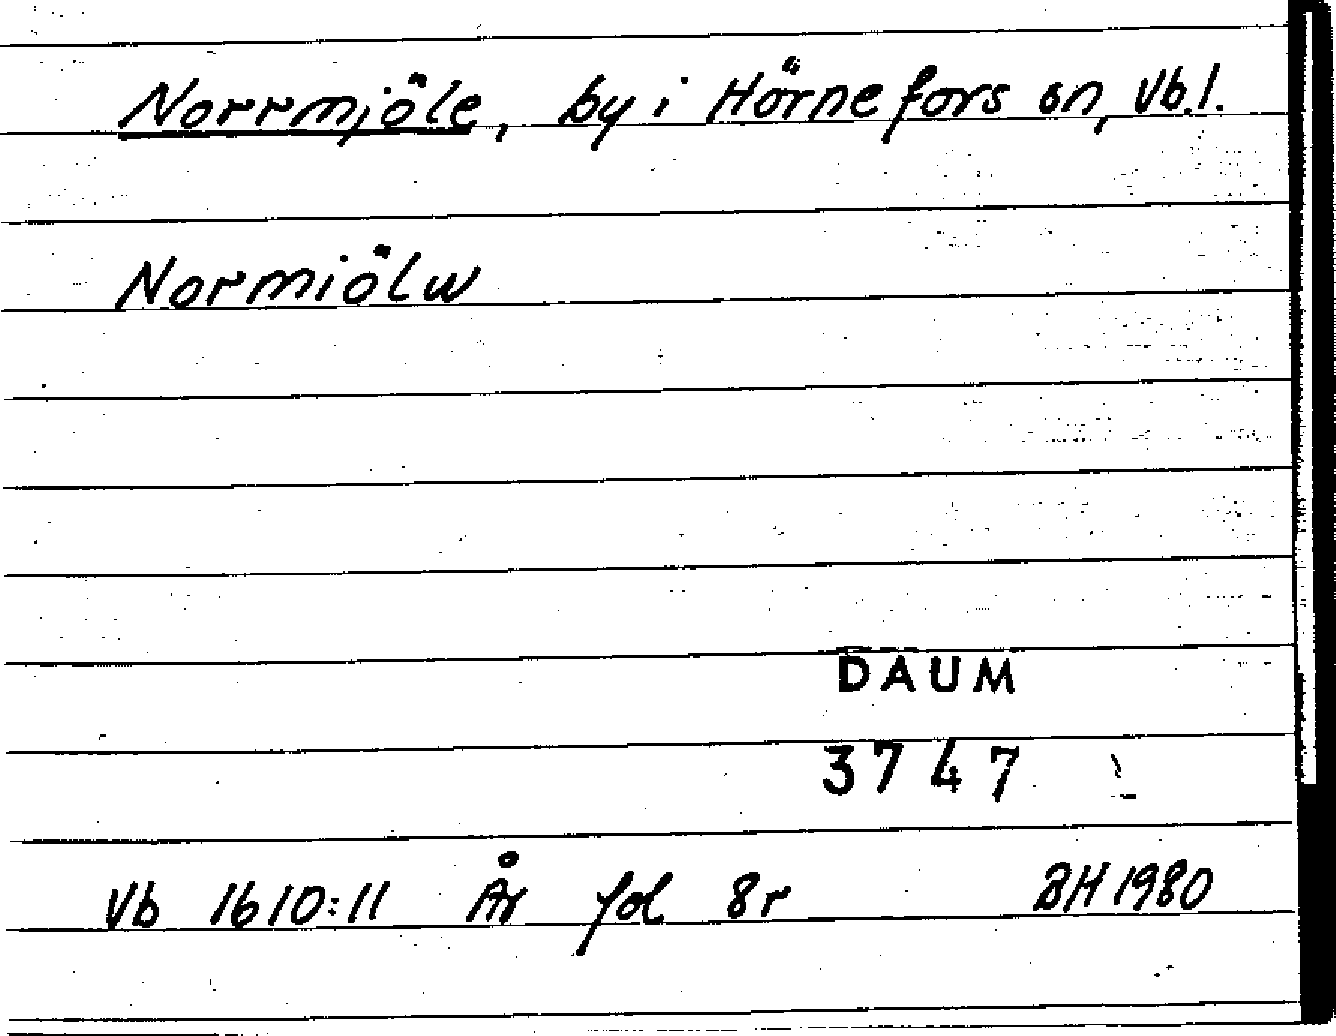 Norrmjöle, by i Hörnefors sn, Vb.l.
Normiölw
DAUM
3747
Vb 1610:11 År fol 8r BH 1980